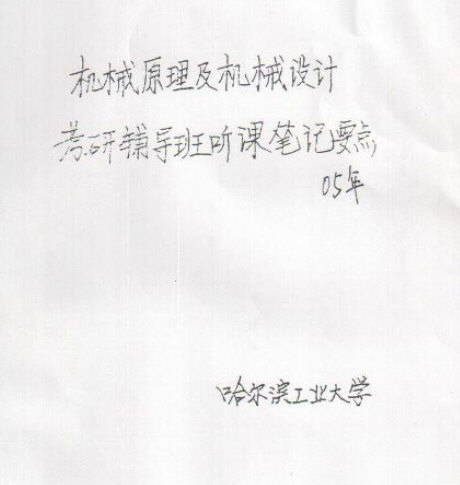 机械原理及机械设计
考研辅导班听课笔记要点
05年
哈尔滨工业大学